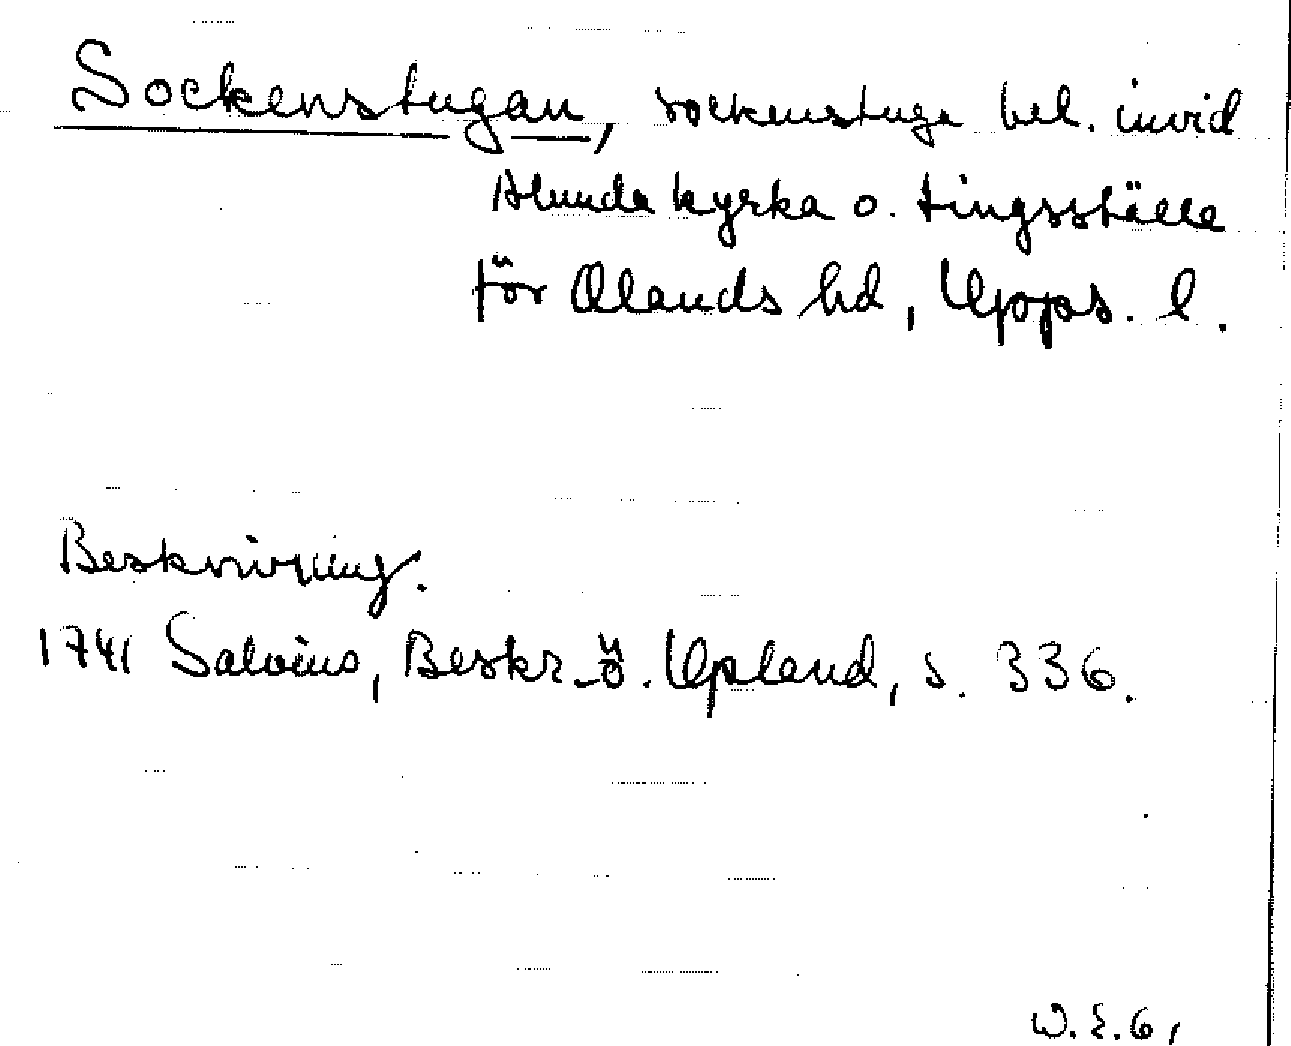 Sockenstugan, sockenstuga bel. invid
Alunda kyrka o. tingsställe
för Olands hd, Upps. l.
Beskrivning.
1741 Salvius, Beskr. ö. Upland, s. 336.